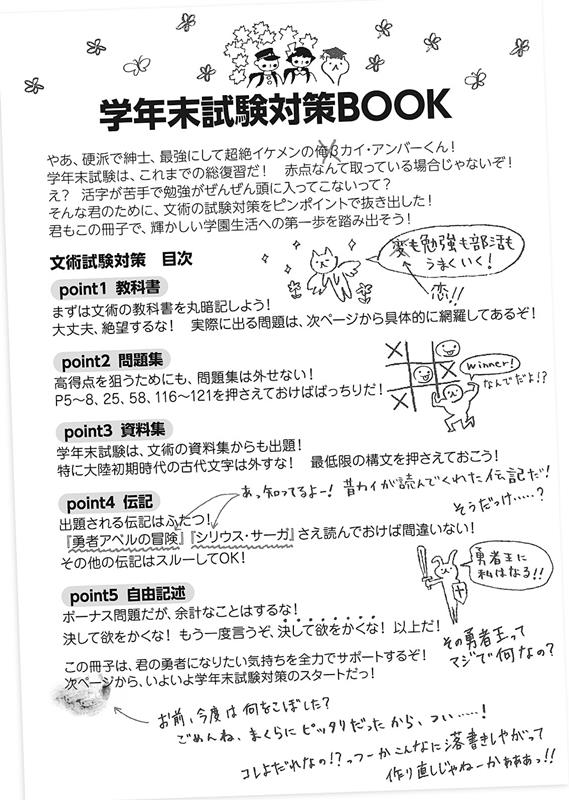 学年末試験対策BOOK
やあ、硬派で紳士、最強にして超絶イケメンの俺カイ・アンバーくん!
学年末試験は、これまでの総復習だ! 赤点なんて取っている場合じゃないぞ!
え? 活字が苦手で勉強がぜんぜん頭に入ってこないって?
そんな君のために、文術の試験対策をピンポイントで抜き出した!
君もこの冊子で、輝かしい学園生活への第一歩を踏み出そう!
文術試験対策 目次
変も勉強も部活も
うまくいく!
恋!!
point1 教科書
まずは文術の教科書を丸暗記しよう!
大丈夫、絶望するな! 実際に出る問題は、次ページから具体的に網羅してあるぞ!
point2 問題集
高得点を狙うためにも、問題集は外せない!
P5〜8、25、58、116〜121を押さえておけばばっちりだ!
winner!
なんでだよ!?
point3 資料集
学年末試験は、文術の資料集からも出題!
特に大陸初期時代の古代文字は外すな! 最低限の構文を押さえておこう!
point4 伝記
あっ、知ってるよー! 昔カイが読んでくれた伝記だ!
そうだっけ……?
出題される伝記はふたつ!
『勇者アベルの冒険』『シリウス・サーガ』さえ読んでおけば間違いない!
その他の伝記はスルーしてOK!
勇者王に
私はなる!!
その勇者王って
マジで何なの?
point5 自由記述
ボーナス問題だが、余計なことはするな!
決して欲をかくな! もう一度言うぞ、決して欲をかくな! 以上だ!
この冊子は、君の勇者になりたい気持ちを全力でサポートするぞ!
次ページから、いよいよ学年末試験対策のスタートだっ!
お前、今度は何をこぼした?
ごめんね、まくらにピッタリだったから、つい……!
コレよだれなの!? っつーかこんなに落書きしやがって
作り直しじゃねーかぁぁぁっ!!